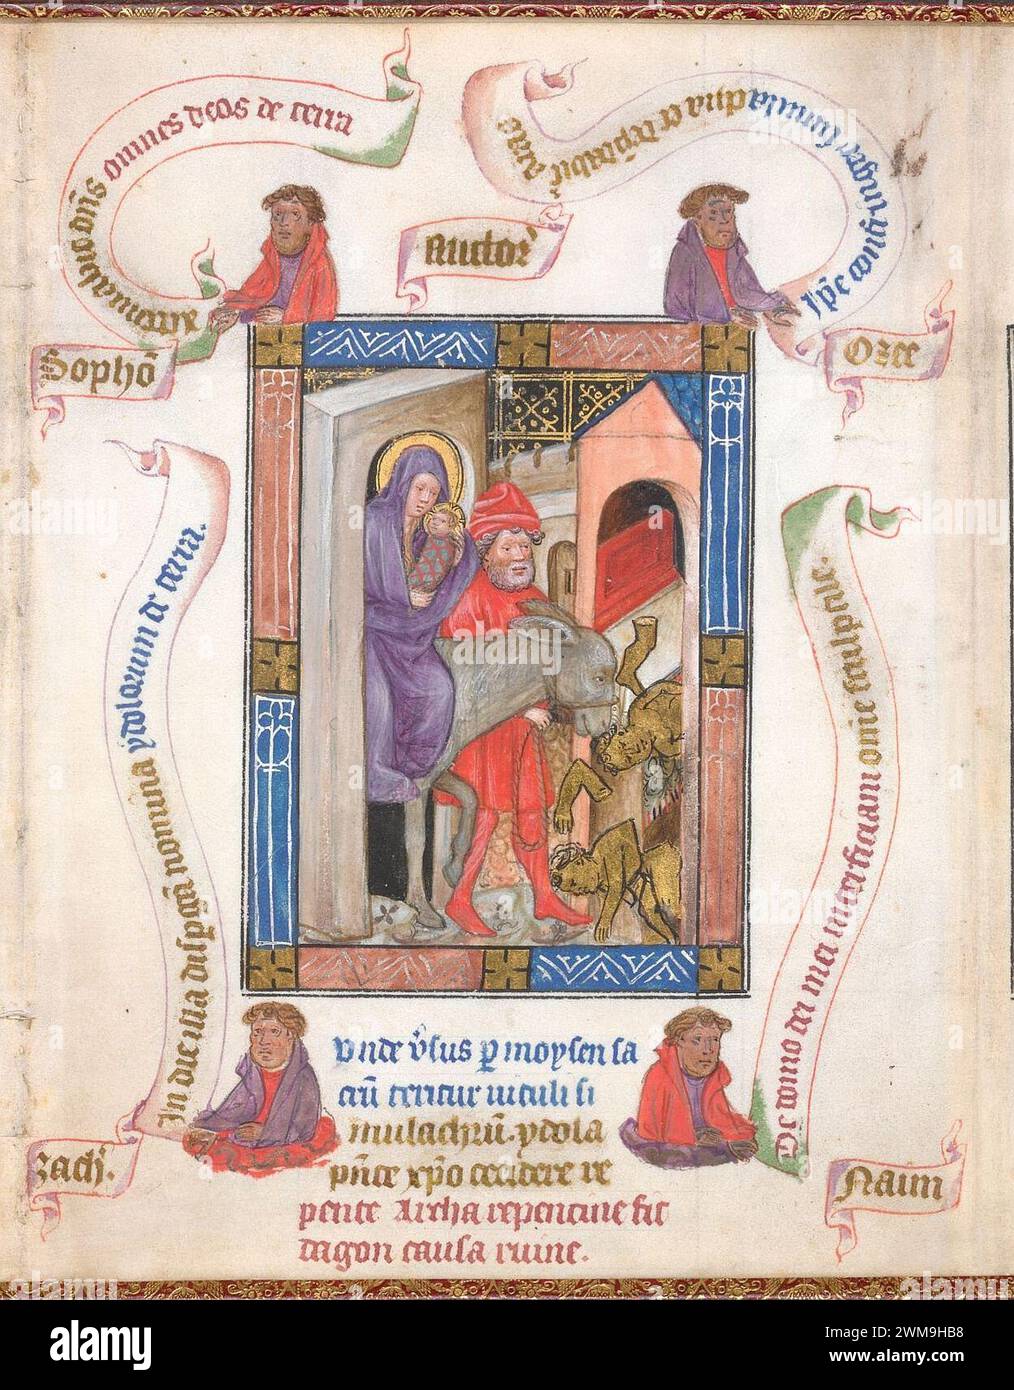 attenuabit dn̄s omnes deos de terra
Sophō
Auctor̄
Ip̄e confringet simulacra
Osee
In die illa disp̄gā nomina ydolorum de terra.
zach̄.
De domo dei mei interficiam om̄e sculptile.
Naum
Vnde v̄sus p̄ moysen sa
crū teritur vituli si
mulachrū. ydola
p̄nte xp̄o cecidere re
pente Archa repentine fit
dagon causa ruine.
alamy
Image ID: 2WM9HB8
www.alamy.com